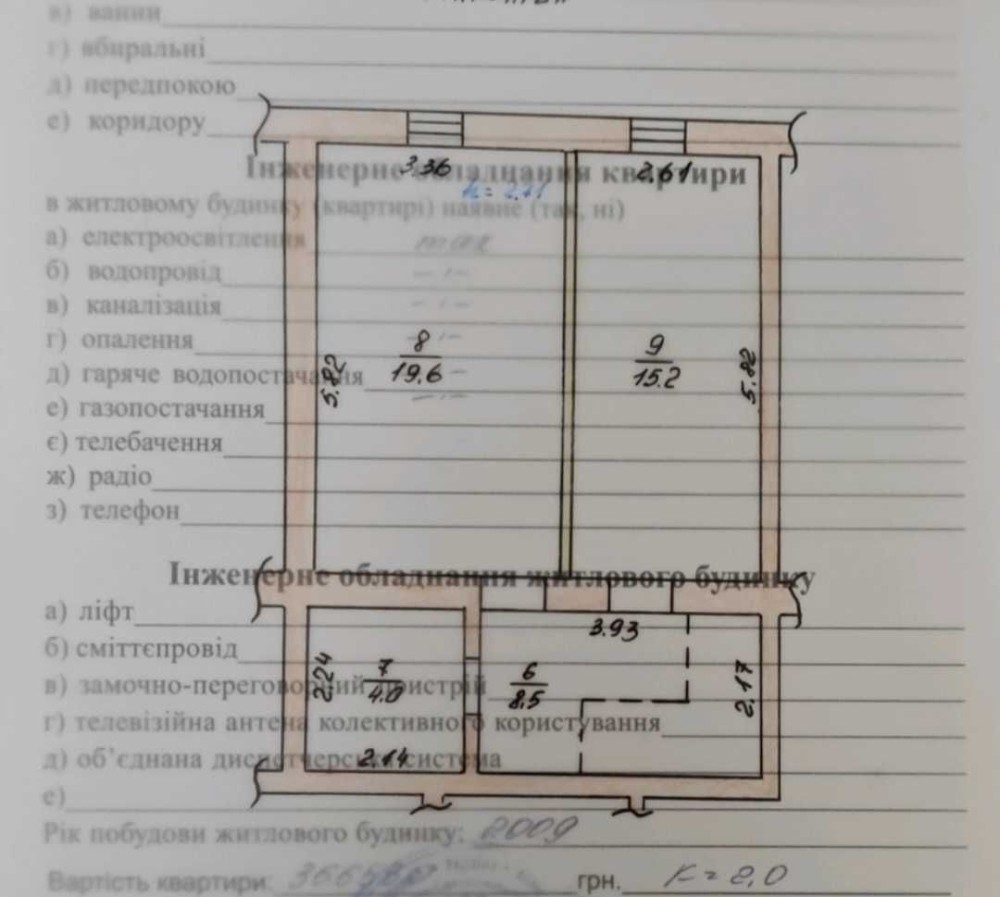 в) ванни
г) вбиральні
д) передпокою
е) коридору
3.36
2.61
Інженерне обладнання квартири
h = 2.71
в житловому будинку (квартирі) наявне (так, ні)
а) електроосвітлення так
б) водопровід -"-
в) каналізація -"-
г) опалення -"-
д) гаряче водопостачання -"-
е) газопостачання -"-
є) телебачення
ж) радіо
з) телефон
5.82
8
19.6
9
15.2
5.82
Інженерне обладнання житлового будинку
а) ліфт
3.93
б) сміттєпровід
в) замочно-переговорний пристрій
2.24
7
4.0
6
8.5
2.17
г) телевізійна антена колективного користування
д) об’єднана диспетчерська система
2.14
е)
Рік побудови житлового будинку: 2009
Вартість квартири: грн. К = 2,0